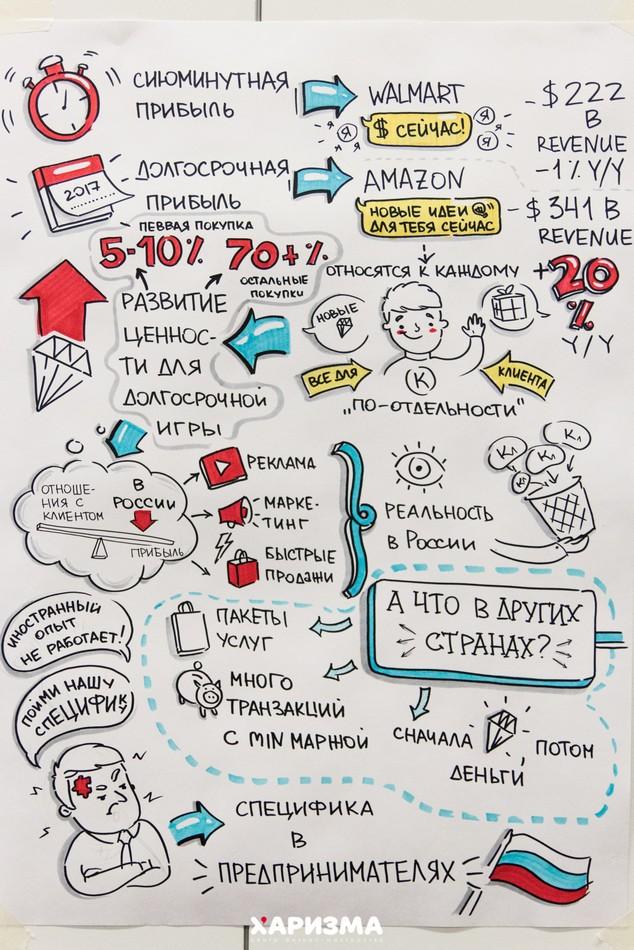 СИЮМИНУТНАЯ
ПРИБЫЛЬ
WALMART
$ СЕЙЧАС!
Я
Я
Я
- $222
B
REVENUE
-1% Y/Y
2017
ДОЛГОСРОЧНАЯ
ПРИБЫЛЬ
AMAZON
НОВЫЕ ИДЕИ
ДЛЯ ТЕБЯ СЕЙЧАС
- $341 B
REVENUE
+20
%
Y/Y
ПЕВВАЯ ПОКУПКА
5-10% 70+%
ОСТАЛЬНЫЕ
ПОКУПКИ
РАЗВИТИЕ
ЦЕННОС-
ТИ ДЛЯ
ДОЛГОСРОЧНОЙ
ИГРЫ
ОТНОСЯТСЯ К КАЖДОМУ
НОВЫЕ
ВСЕ ДЛЯ
К
КЛИЕНТА
„ПО-ОТДЕЛЬНОСТИ"
ОТНОШЕ-
НИЯ С
КЛИЕНТОМ
В
РОССИИ
ПРИБЫЛЬ
РЕКЛАМА
МАРКЕ-
ТИНГ
БЫСТРЫЕ
ПРОДАЖИ
РЕАЛЬНОСТЬ
В РОССИИ
Кл
Кл
Кл
ИНОСТРАННЫЙ
ОПЫТ
НЕ РАБОТАЕТ!
ПОЙМИ НАШУ
СПЕЦИФИ
А ЧТО В ДРУГИХ
СТРАНАХ?
ПАКЕТЫ
УСЛУГ
МНОГО
ТРАНЗАКЦИЙ
С MIN МАРЖОЙ
СНАЧАЛА
ПОТОМ
ДЕНЬГИ
СПЕЦИФИКА
В
ПРЕДПРИНИМАТЕЛЯХ
ХАРИЗМА